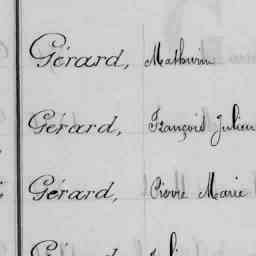 Gérard, Mathurin
Gérard, François Julien
Gérard, Pierre Marie